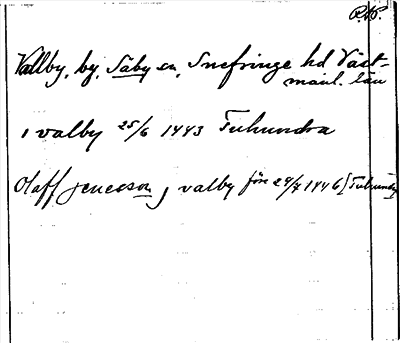 P.N.
Vallby, by, Säby sn, Snefringe hd Väst-
manl. län
i valby 25/6 1443 Tuhundra
Olaff jenesson j valby före 24/7 1446 [Tuhundra]